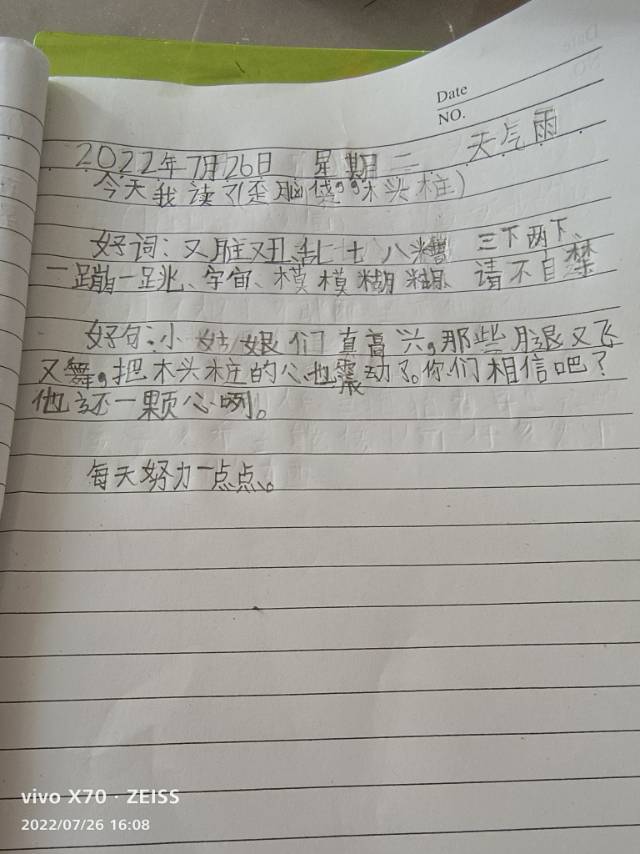 Date
NO.
2022年7月26日 星期二 天气雨
今天我读了(歪脑袋,木头桩)
好词:又脏又丑、乱七八糟 三下两下、
一蹦一跳、字句、模模糊糊 请不自禁
好句:小姑娘们真高兴,那些腿又飞
又舞,把木头桩的心也震动了。你们相信吧?
他还一颗心咧。
每天努力一点点。
vivo X70 · ZEISS
2022/07/26 16:08